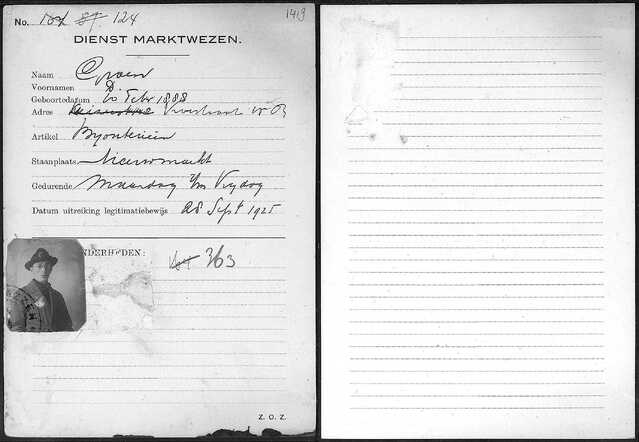 No. 104 87 124 1419
DIENST MARKTWEZEN.
Naam Groen
Voornamen D.
Geboortedatum 20 Febr 1888
Adres
Artikel Byouterieën
Staanplaats Nieuwmarkt
Gedurende Maandag t/m Vrijdag
Datum uitreiking legitimatiebewijs 28 Sept 1925
NDERHEDEN:
363
Z. O. Z.